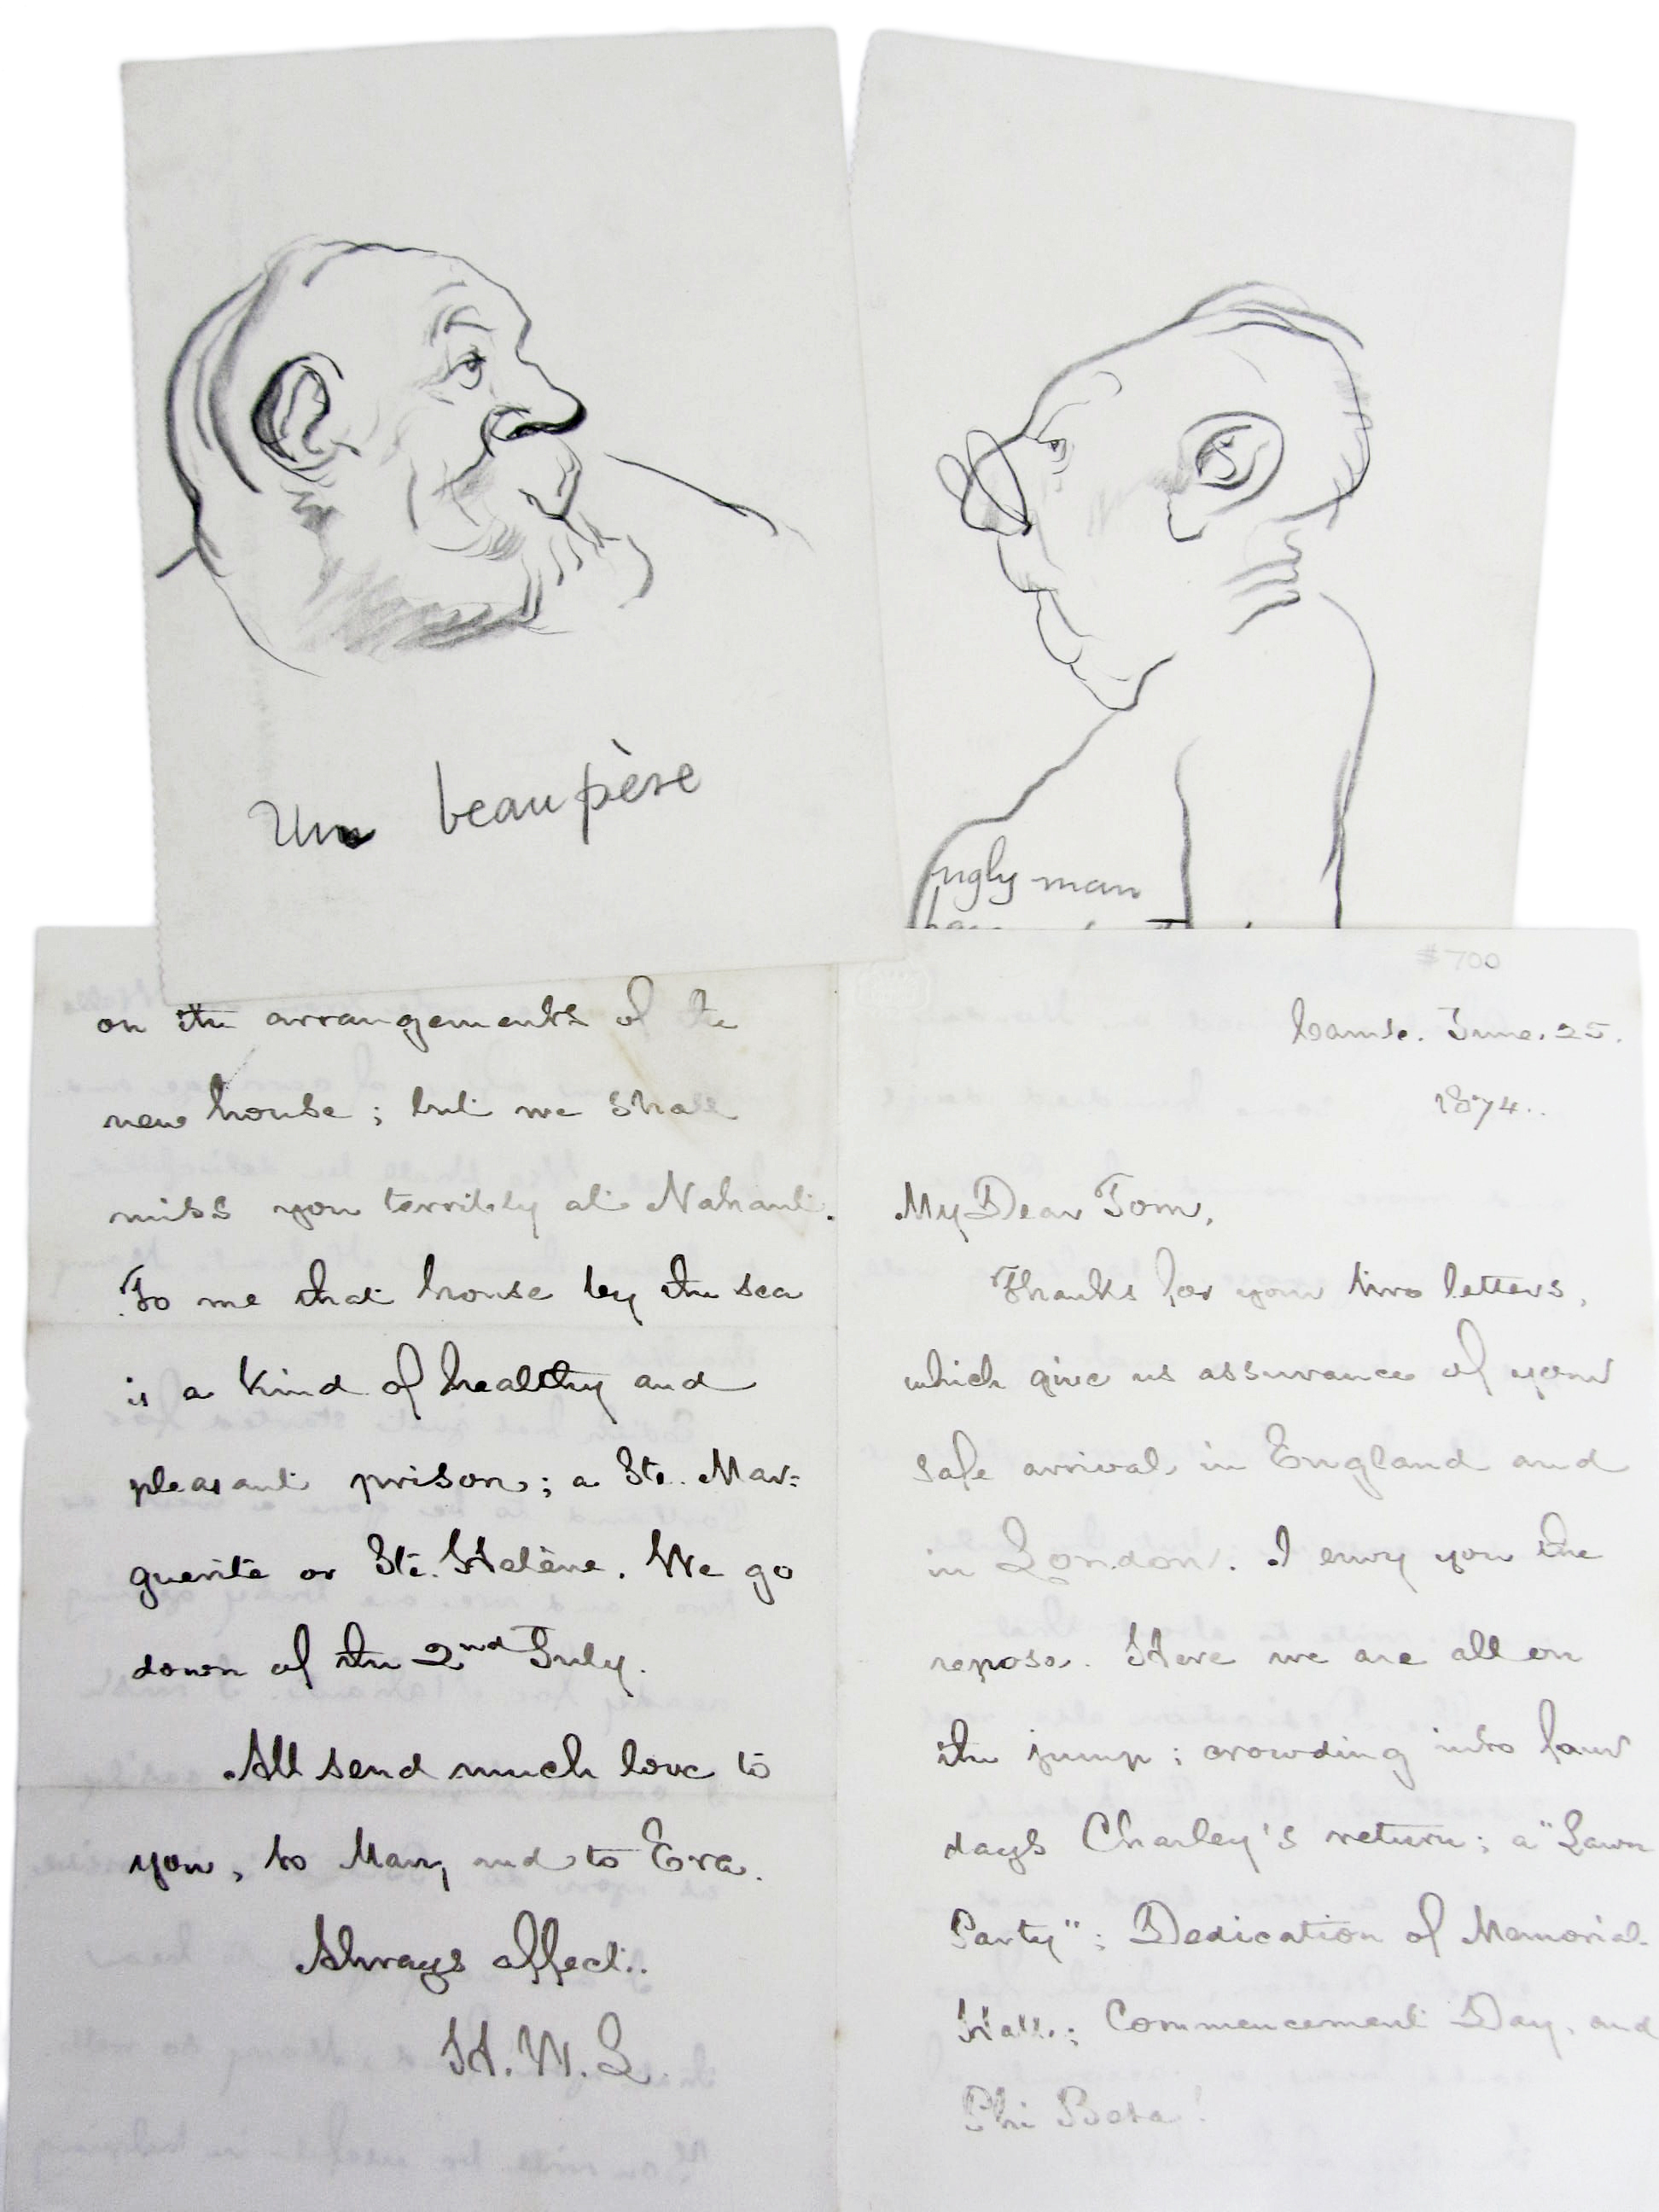 Un beau père
ugly man
on the arrangements of the
new house; but we shall
miss you terribly at Nahant.
To me that house by the sea
is a kind of healthy and
pleasant prison; a Ste. Mar=
guerite or Ste. Helène. We go
down of the 2nd July.
All send much love to
you, to Mary and to Eva.
Always affect..
H. W. L.
#700
Camb. June. 25.
1874..
My Dear Tom,
Thanks for your two letters,
which give us assurance of your
safe arrival in England and
in London. I envy you the
repose. Here we are all on
the jump; crowding into four
days Charley's return; a "Lawn
Party"; Dedication of Memorial
Hall; Commencement Day, and
Phi Beta!